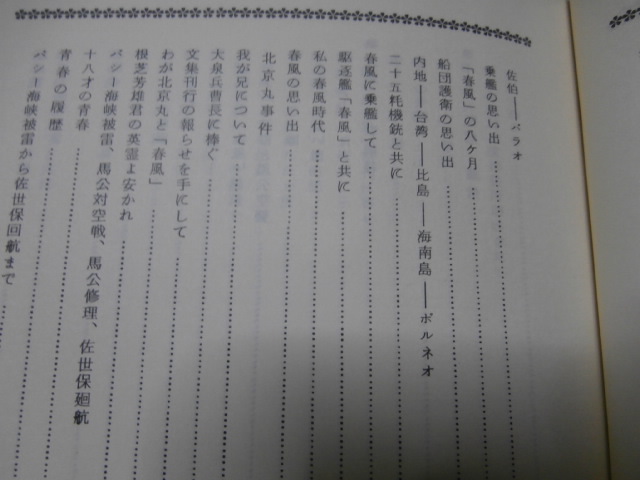 佐伯――パラオ
乗艦の思い出
「春風」の八ヶ月
船団護衛の思い出
内地――台湾――比島――海南島――ボルネオ
二十五粍機銃と共に
春風に乗艦して
駆逐艦「春風」と共に
私の春風時代
春風の思い出
北京丸事件
我が兄について
大泉兵曹長に捧ぐ
文集刊行の報らせを手にして
わが北京丸と「春風」
根芝芳雄君の英霊よ安かれ
バシー海峡被雷、馬公対空戦、馬公修理、佐世保廻航
十八才の青春
青春の履歴
バシー海峡被雷から佐世保回航まで